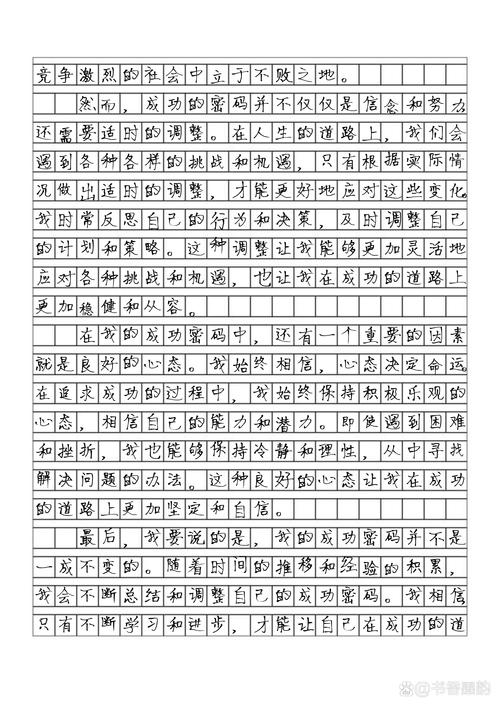 竞争激烈的社会中立于不败之地。
然而，成功的密码并不仅仅是信念和努力
还需要适时的调整。在人生的道路上，我们会
遇到各种各样的挑战和机遇，只有根据实际情
况做出适时的调整，才能更好地应对这些变化。
我时常反思自己的行为和决策，及时调整自己
的计划和策略。这种调整让我能够更加灵活地
应对各种挑战和机遇，也让我在成功的道路上
更加稳健和从容。
在我的成功密码中，还有一个重要的因素
就是良好的心态。我始终相信，心态决定命运。
在追求成功的过程中，我始终保持积极乐观的
心态，相信自己的能力和潜力。即使遇到困难
和挫折，我也能够保持冷静和理性，从中寻找
解决问题的办法。这种良好的心态让我在成功
的道路上更加坚定和自信。
最后，我要说的是，我的成功密码并不是
一成不变的。随着时间的推移和经验的积累，
我会不断总结和调整自己的成功密码。我相信
只有不断学习和进步，才能让自己在成功的道